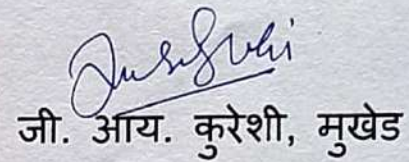 जी. आय. कुरेशी, मुखेड